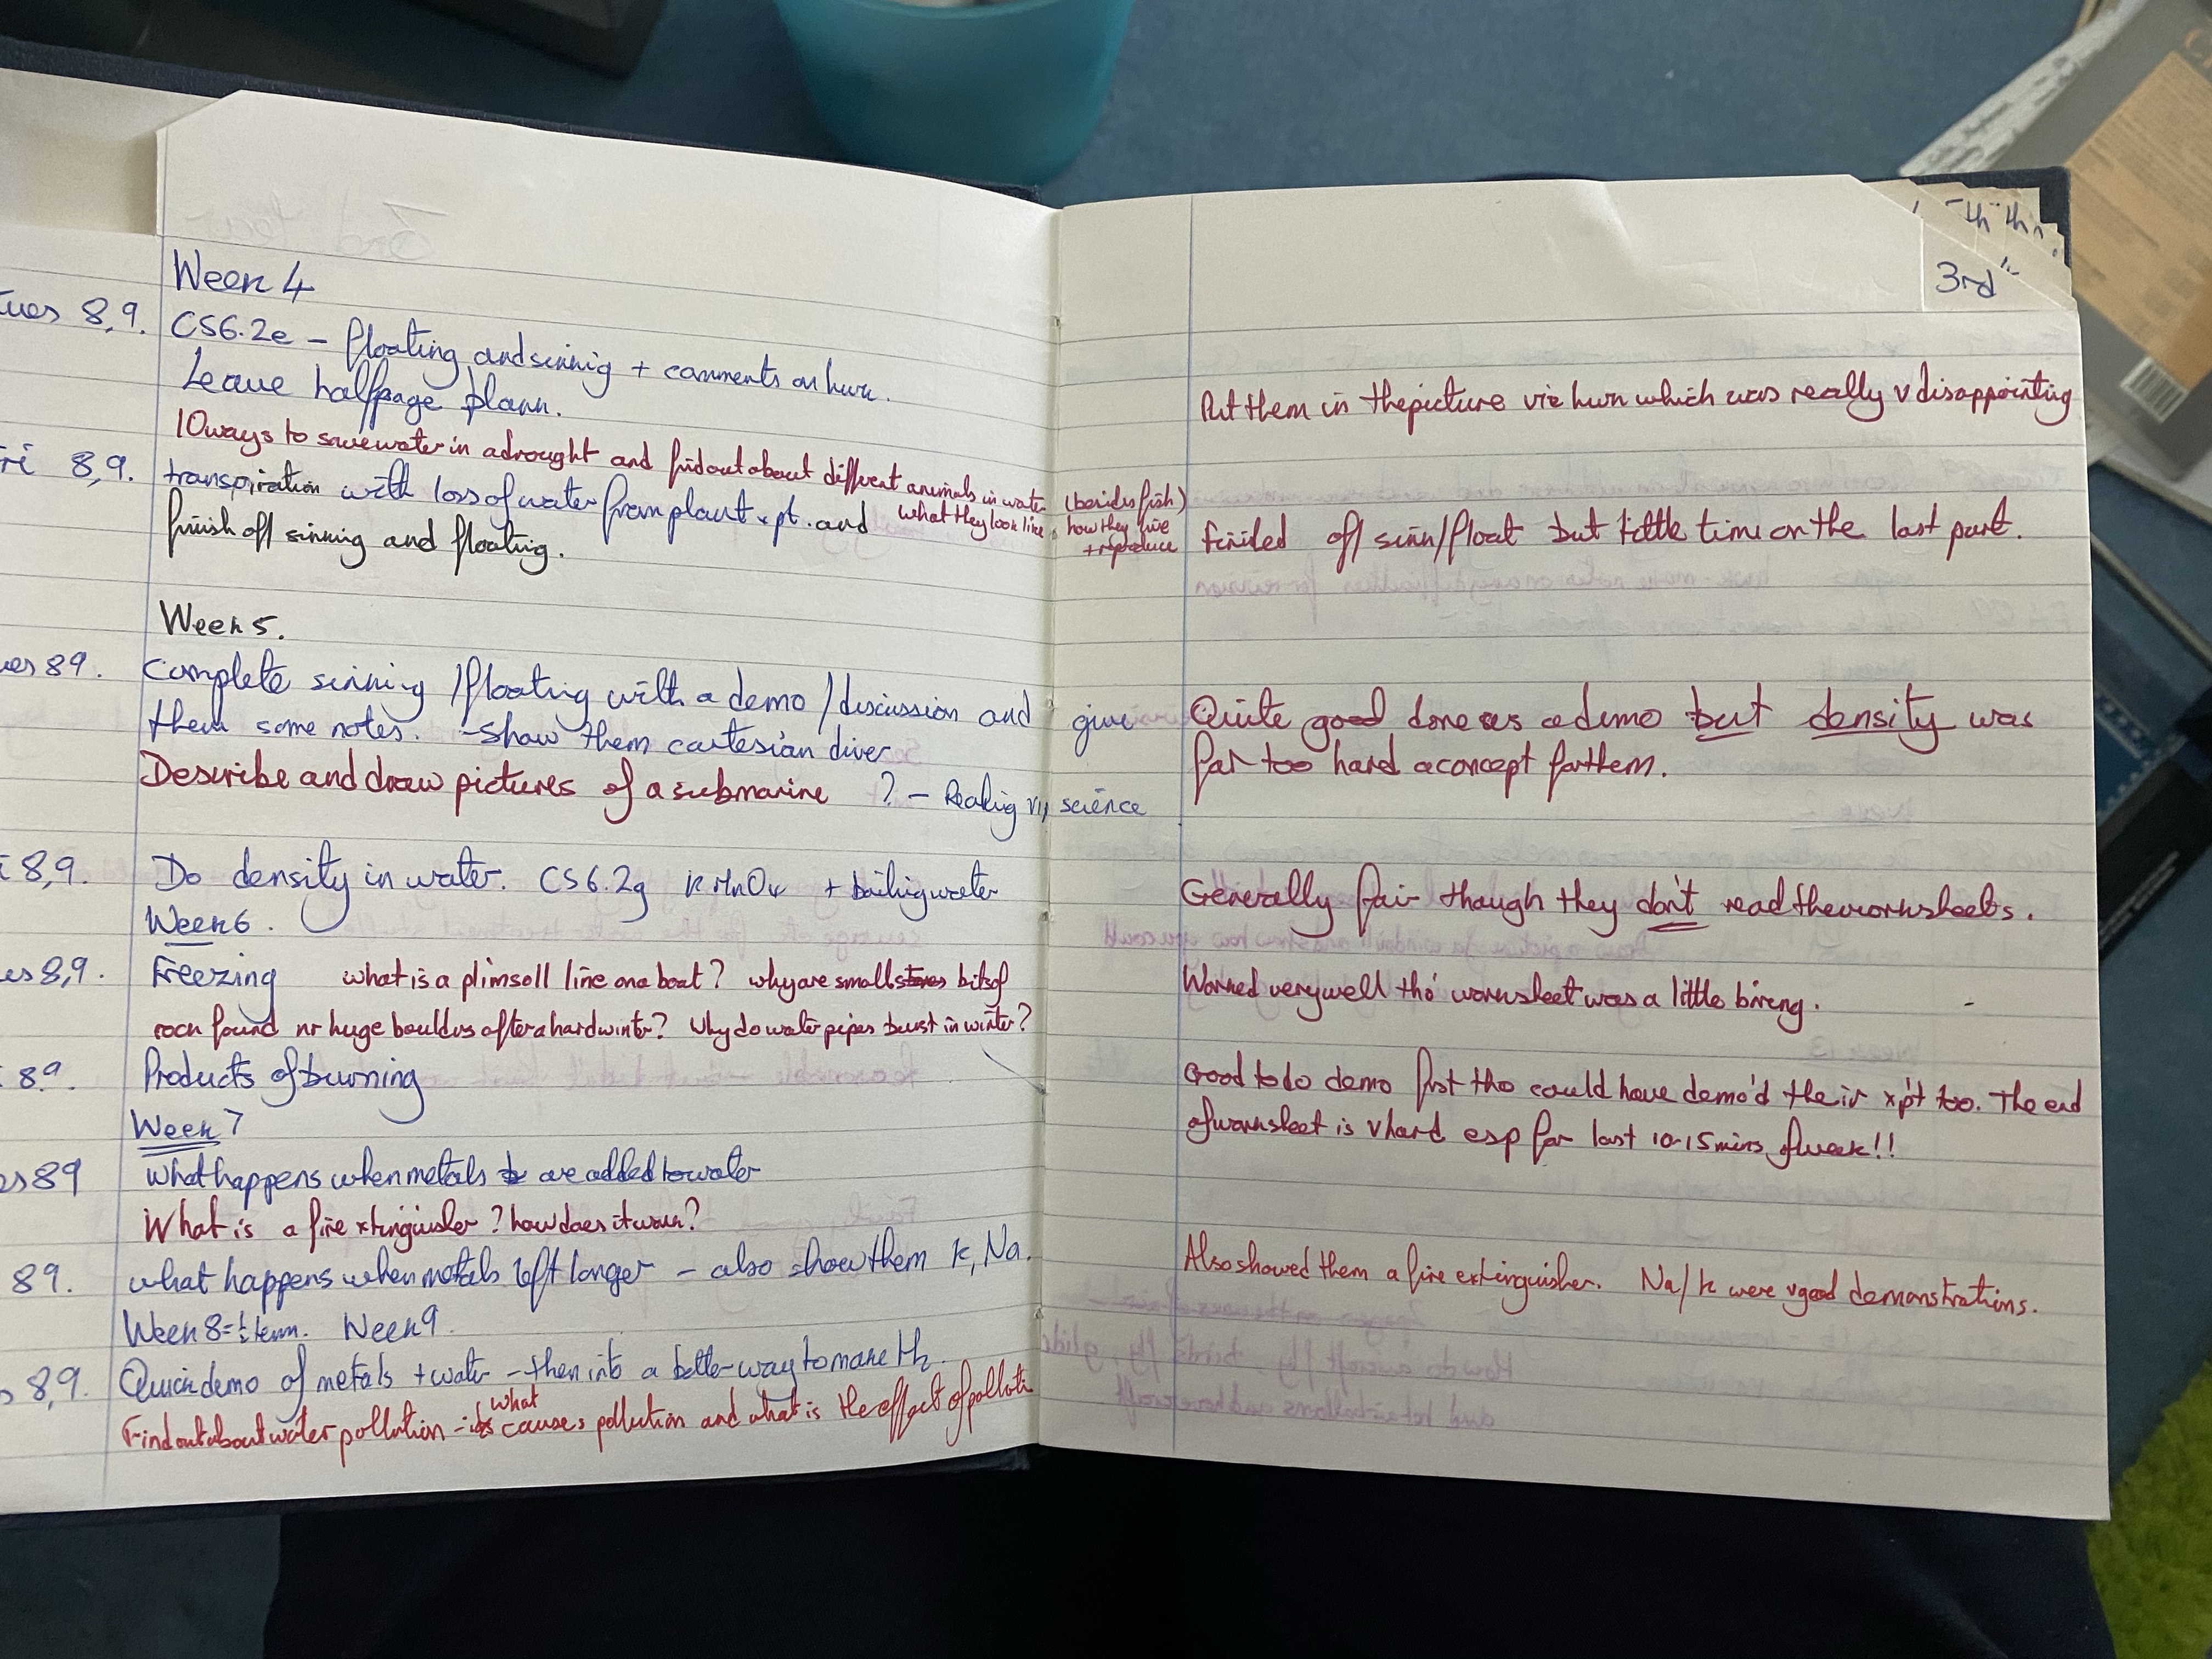 3rd
Week 4
ues 8,9. CS6.2e – floating and sinking + comments on hwk.
Leave half page plann.
10 ways to save water in a drought and find out about different animals in water (besides fish)
what they look like, how they live
+ reproduce
ri 8,9. transpiration with loss of water from plant xpt. and
finish off sinking and floating.
Week 5.
ues 89. Complete sinking/floating with a demo/discussion and give
them some notes. – Show them cartesian diver
Describe and draw pictures of a submarine ? – Reading in science
i 8,9. Do density in water. CS6.2g KMnO4 + boiling water
Week 6.
es 8,9. Freezing what is a plimsoll line on a boat? why are small stones bits of
rock found nr huge boulders after a hard winter? Why do water pipes burst in winter?
8.9. Products of burning
Week 7
es 89 What happens when metals are added to water
What is a fire xtinguisher? how does it work?
89. what happens when metals left longer – also show them K, Na.
Week 8 = ½ term. Week 9
s 8,9. Quick demo of metals + water – then into a better way to make H2.
Find out about water pollution – what causes pollution and what is the effect of polluti
Put them in the picture vis hwk which was really v disappointing
finished off sink/float but little time on the last part.
Quite good done as a demo but density was
far too hard a concept for them.
Generally fair though they don't read the worksheets.
Worked very well tho' worksheet was a little boring.
Good to do demo first tho could have demo'd their xp't too. The end
of worksheet is v hard esp for last 10-15 mins of week!!
Also showed them a fire extinguisher. Na/K were v good demonstrations.